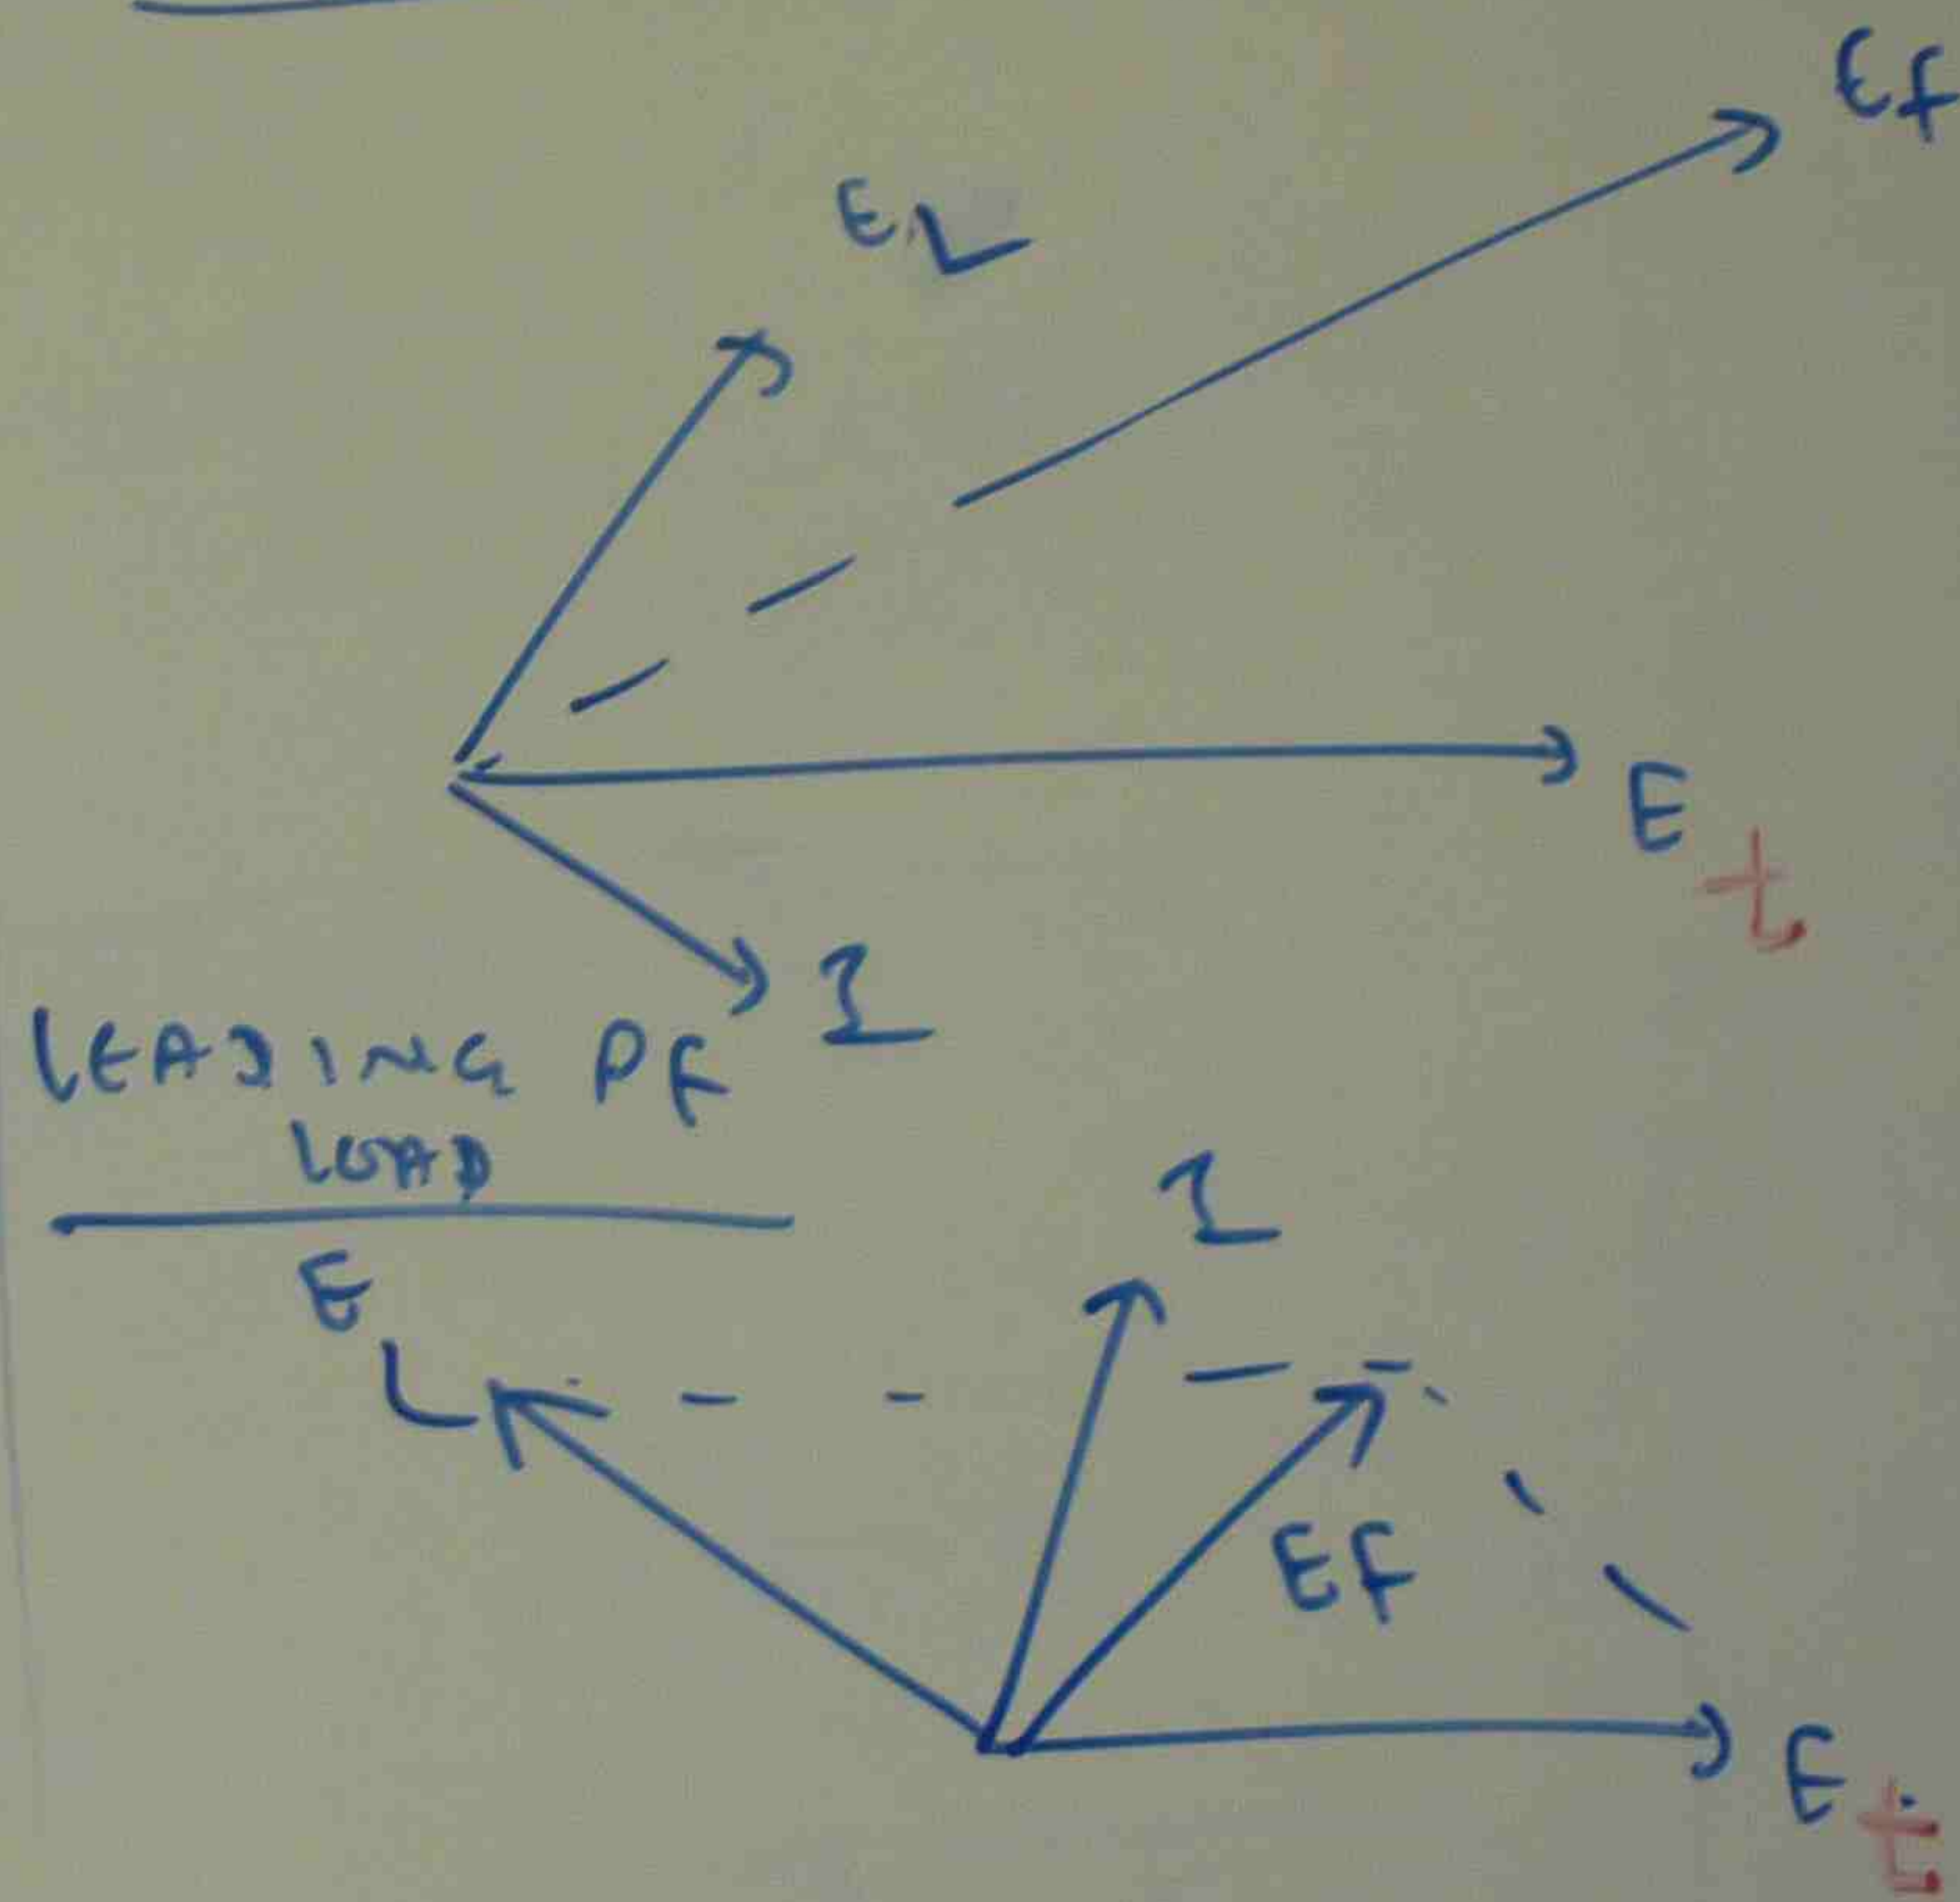 Ef
EL
Et
I
LEADING PF
LOAD
I
EL
Ef
Et